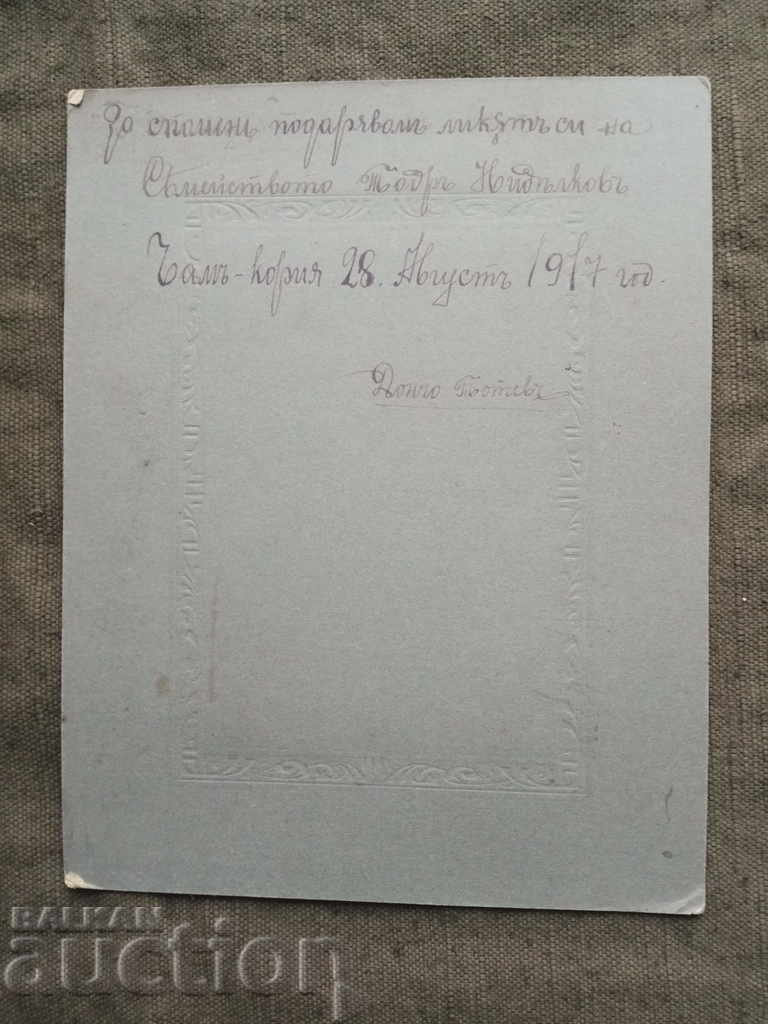 За спомень подарявамъ ликътъ си на
Сѣмейството Тодръ Нидѣлковъ
Чамъ-кория 28. Августъ 1917 год.
Дончо Тотевъ
BALKAN
auction